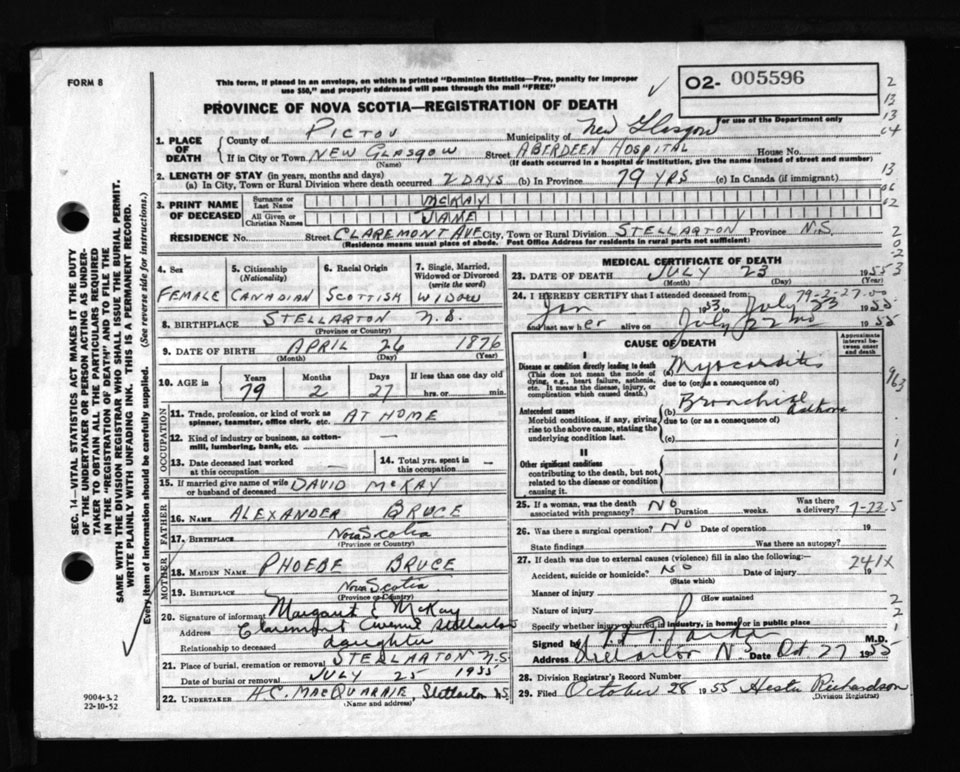 FORM 8
This form, if placed in an envelope, on which is printed "Dominion Statistics—Free, penalty for improper
use $50," and properly addressed will pass through the mail "FREE"
02- 005596
For use of the Department only
PROVINCE OF NOVA SCOTIA—REGISTRATION OF DEATH
1. PLACE OF DEATH County of PICTOU Municipality of New Glasgow
If in City or Town NEW GLASGOW Street ABERDEEN HOSPITAL House No.
(Name) (If death occurred in a hospital or institution, give the name instead of street and number)
2. LENGTH OF STAY (in years, months and days)
(a) In City, Town or Rural Division where death occurred 2 DAYS (b) In Province 79 YRS (c) In Canada (if immigrant)
3. PRINT NAME OF DECEASED Surname or Last Name McKAY
All Given or Christian Names JANE
RESIDENCE No. Street CLAREMONT AVE City, Town or Rural Division STELLARTON Province N.S.
(Residence means usual place of abode. Post Office Address for residents in rural parts not sufficient)
4. Sex FEMALE
5. Citizenship (Nationality) CANADIAN
6. Racial Origin SCOTTISH
7. Single, Married, Widowed or Divorced (write the word) WIDOW
8. BIRTHPLACE STELLARTON N.S.
(Province or Country)
9. DATE OF BIRTH APRIL 26 1876
(Month) (Day) (Year)
10. AGE in Years Months Days If less than one day old
79 2 27 hrs. or min.
OCCUPATION
11. Trade, profession, or kind of work as spinner, teamster, office clerk, etc. AT HOME
12. Kind of industry or business, as cotton-mill, lumbering, bank, etc. —
13. Date deceased last worked at this occupation —
14. Total yrs. spent in this occupation —
15. If married give name of wife or husband of deceased DAVID McKAY
FATHER
16. NAME ALEXANDER BRUCE
17. BIRTHPLACE Nova Scotia
(Province or Country)
MOTHER
18. MAIDEN NAME PHOEBE BRUCE
19. BIRTHPLACE Nova Scotia
(Province or Country)
20. Signature of informant Margaret E McKay
Address Claremont Avenue Stellarton
Relationship to deceased daughter
21. Place of burial, cremation or removal STELLARTON N.S.
Date of burial or removal JULY 25 1955
22. UNDERTAKER H.C. MACQUARRIE, Stellarton NS
(Name and address)
MEDICAL CERTIFICATE OF DEATH
23. DATE OF DEATH JULY 23 1955
(Month) (Day) (Year)
79-2-27-00
24. I HEREBY CERTIFY that I attended deceased from:
Jan 1953 to July 23 1955
and last saw her alive on July 22nd 1955
CAUSE OF DEATH
Approximate interval between onset and death
I
Disease or condition directly leading to death
(This does not mean the mode of dying, e.g., heart failure, asthenia, etc. It means the disease, injury, or complication which caused death.)
(a) Myocarditis
due to (or as a consequence of)
Antecedent causes
Morbid conditions, if any, giving rise to the above cause, stating the underlying condition last.
(b) Bronchial Asthma
due to (or as a consequence of)
(c)
II
Other significant conditions
contributing to the death, but not related to the disease or condition causing it.
25. If a woman, was the death associated with pregnancy? NO Duration weeks. Was there a delivery? 7-22.5
26. Was there a surgical operation? NO Date of operation 19
State findings Was there an autopsy?
27. If death was due to external causes (violence) fill in also the following:—
Accident, suicide or homicide? NO Date of injury 19
(State which)
241X
Manner of injury
(How sustained
Nature of injury
Specify whether injury occurred in industry, in home, or in public place
Signed by M.D.
Address Stellarton N.S. Date Oct. 27 1955
28. Division Registrar's Record Number
29. Filed October 28 1955 Hester Richardson
(Division Registrar)
SEC. 14—VITAL STATISTICS ACT MAKES IT THE DUTY
OF THE UNDERTAKER OR PERSON ACTING AS UNDER-
TAKER TO OBTAIN ALL THE PARTICULARS REQUIRED
IN THE "REGISTRATION OF DEATH" AND TO FILE THE
SAME WITH THE DIVISION REGISTRAR WHO SHALL ISSUE THE BURIAL PERMIT.
WRITE PLAINLY WITH UNFADING INK. THIS IS A PERMANENT RECORD.
Every item of information should be carefully supplied. (See reverse side for instructions.)
9004-3.2
22-10-52
2
13
13
04
13
06
02
2
0
2
3
963
1
1
1
2
2
1